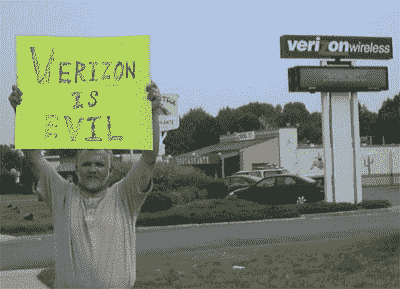 VERIZON
IS
EVIL
verizonwireless